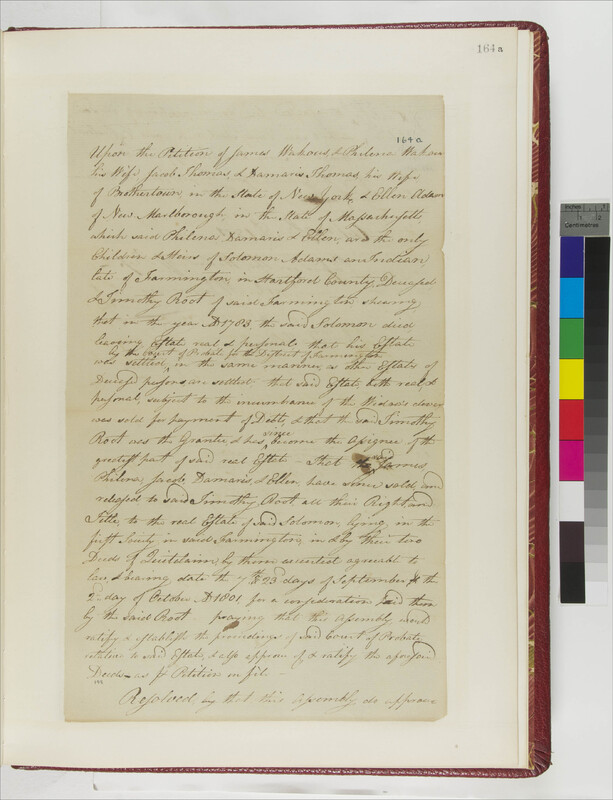 164a
164a
Upon the Petition of James Wahous, & Philena Wahous
his Wife Jacob Thomas, & Damaris Thomas, his Wife
of Brothertown, in the State of New York, & Ellen Adams
of New Marlborough in the State of Massachusetts
which said Philena Damaris & Ellen, are the only
Children & Heirs of Solomon Adams an Indian
late of Farmington, in Hartford County, Deceased
& Timothy Root of said Farmington shewing
that in the year AD 1783, the said Solomon died
leaving Estate real & personal, that his Estate
by the Court of Probate for the District of Farmington
was settled, in the same manner as other Estates of
Deceased persons are settled that said Estate, both real, &
personal, subject to the incumbrance of the Widow's dower
was sold for payment of Debts, & that the said Timothy
Root was the Grantee & has, since become the Assignee of the
greatest part of said real Estate - That James
Philena Jacob, Damaris, & Ellen, have since sold, and
released to said Timothy Root, all their Right and
Title, to the real Estate of said Solomon, lying, in the
first Society in said Farmington, in & by their two
Deeds of Quitclaim, by them executed agreable to
law, & bearing date the 7th & 23 days of September & the
2d day of October AD 1801 for a consideration paid them
by the said Root praying that this Assembly would
ratify & establish the proceedings of said Court of Probate
relative to said Estate, & also approve of & ratify the aforesaid
Deeds - as pr Petition on file -
Resolved, by that this Assembly do approve
Inches
Centimetres